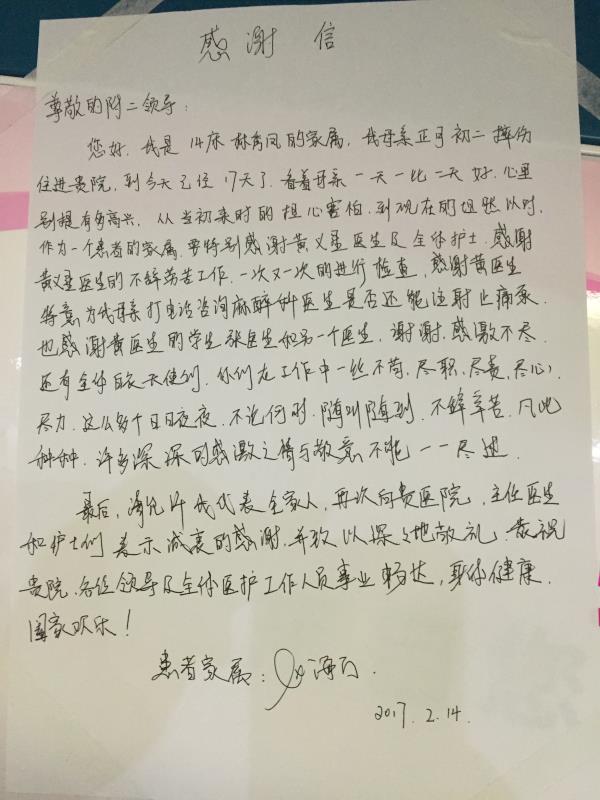 感谢信
尊敬的附二领导：
您好．我是14床林秀凤的家属，我母亲正月初二摔伤
住进贵院，到今天已经17天了．看着母亲一天一比一天好．心里
别提有多高兴．从当初来时的担心害怕．到现在的坦然以对．
作为一个患者的家属．要特别感谢黄义星医生及全体护士．感谢
黄义星医生的不辞劳苦工作．一次又一次的进行检查，感谢黄医生
特意为我母亲打电话咨询麻醉科医生是否还能注射止痛泵．
也感谢黄医生的学生张医生和另一个医生，谢谢，感激不尽．
还有全体白衣天使们．你们在工作中一丝不苟、尽职，尽责，尽心，
尽力．这么多个日日夜夜．不论何时．随叫随到．不辞辛苦．凡此
种种．许多深深的感激之情与敬意不能一一尽述．
最后，请允许我代表全家人，再次向贵医院，主任医生
和护士们表示诚衷的感谢．并致以深々地敬礼．恭祝
贵院．各位领导及全体医护工作人员事业畅达，身体健康．
阖家欢乐！
患者家属：海
2017．2．14．